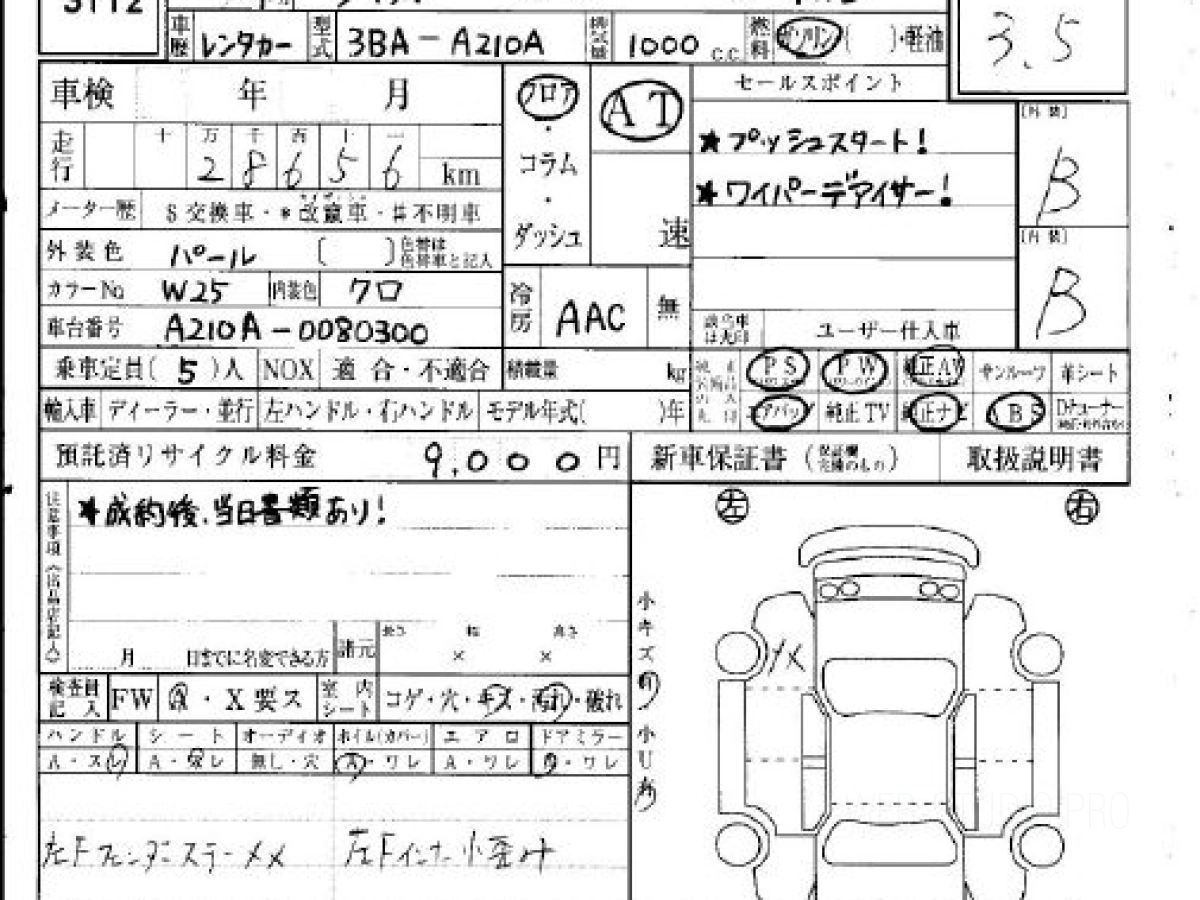 車歴 レンタカー 型式 3BA-A210A 排気量 1000 C.C. 燃料 ガソリン ( )・軽油
3.5
車検 年 月
フロア・コラム・ダッシュ
AT
速
セールスポイント
★プッシュスタート!
★ワイパーデアイサー!
走行 十 万 千 百 十 一
2 8 6 5 6 km
メーター歴 $交換車・*改竄車・#不明車
外装色 パール ( ) 色替は色替車と記入
カラーNo W25 内装色 クロ
車台番号 A210A-0080300
冷房 AAC 無
[外装] B
[内装] B
ユーザー仕入車
乗車定員( 5 )人 NOX 適合・不適合 積載量 kg
PS PW 純正AW サンルーフ 革シート
エアバッグ 純正TV 純正ナビ ABS
輸入車 ディーラー・並行 左ハンドル・右ハンドル モデル年式( )年
預託済リサイクル料金 9,000円
新車保証書 取扱説明書
注意事項
★成約後、当日書類あり!
月 日までに名変できる方
諸元 長さ × 幅 × 高さ
検査員記入 FW Ⓐ・X要ス 室内シート コゲ・穴・キズ・汚れ・破れ
ハンドル シート オーディオ ホイル(カバー) エアロ ドアミラー
A・スレ 無し・穴 A・ワレ
左Fフェンダーステーメメ 左Fインナー小歪み
左 右
小キズ有 小U有